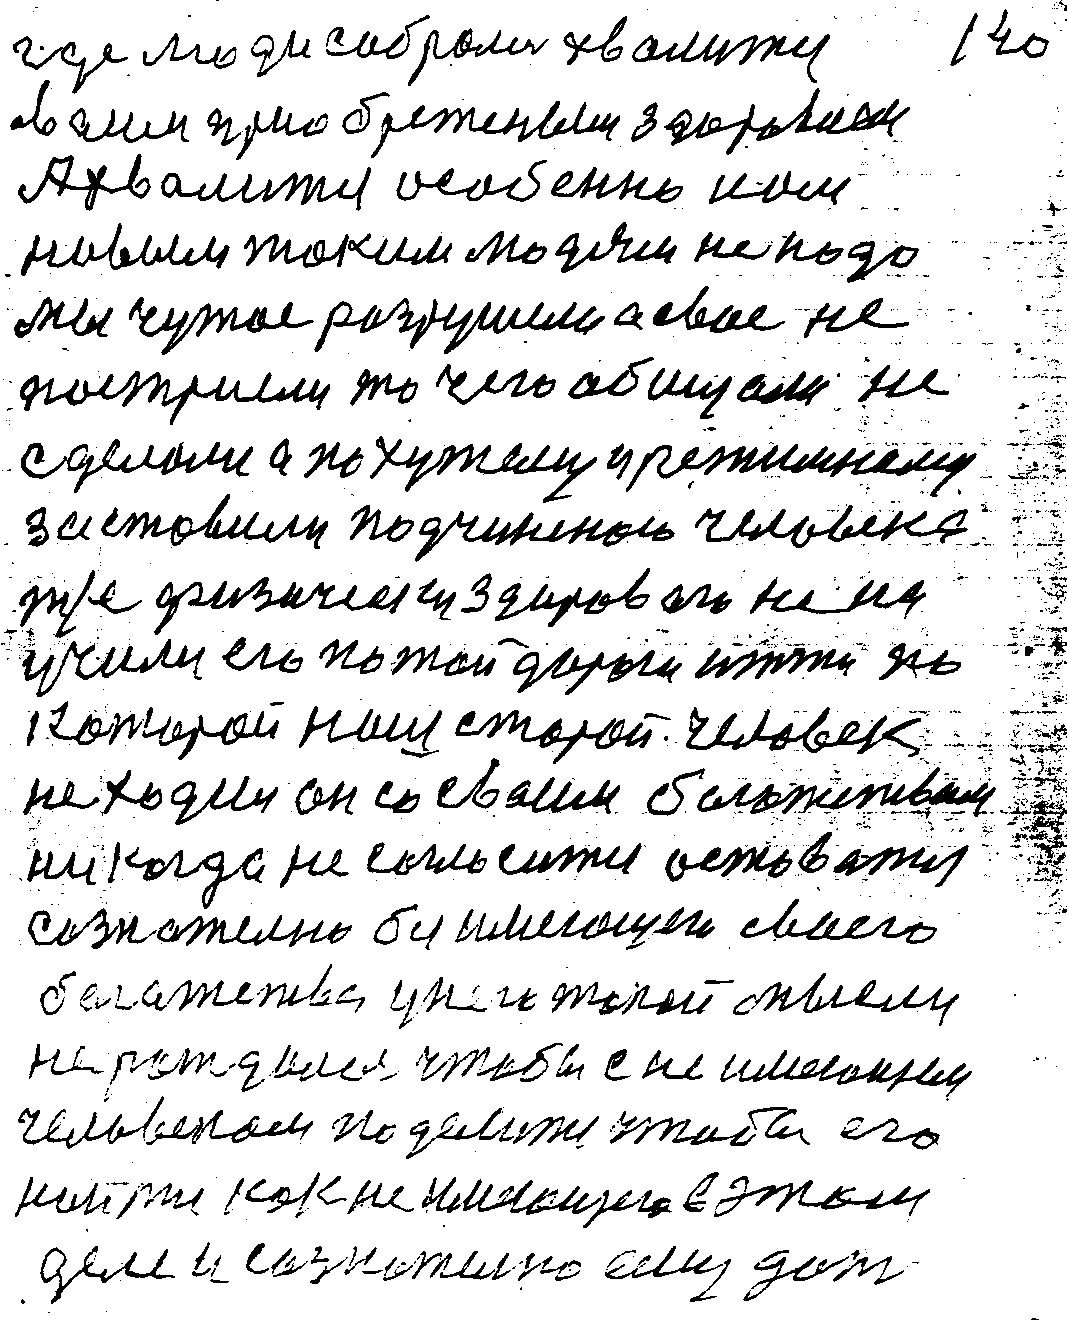 где люди собрали хвалити 140
вали приобретеным здоровием
А хвалити особенно нам
новым таким людям не надо
мы чужое разрушили а свое не
построели то чего обищали не
сделали а похужему и режимнаму
заставили подчиненою человека
тже физически здорового не на
учили его по той дороги итти по
которой наш старой человек
не ходил он со своим богатжеством
никогда не согласити оставатя
сознателно би имеющего своего
богатетва у него такой мысели
не рождалося чтоби с не имеющем
человеком поделити чтоби его
найти как не имеющего в этом
деле и сознателно ему дат